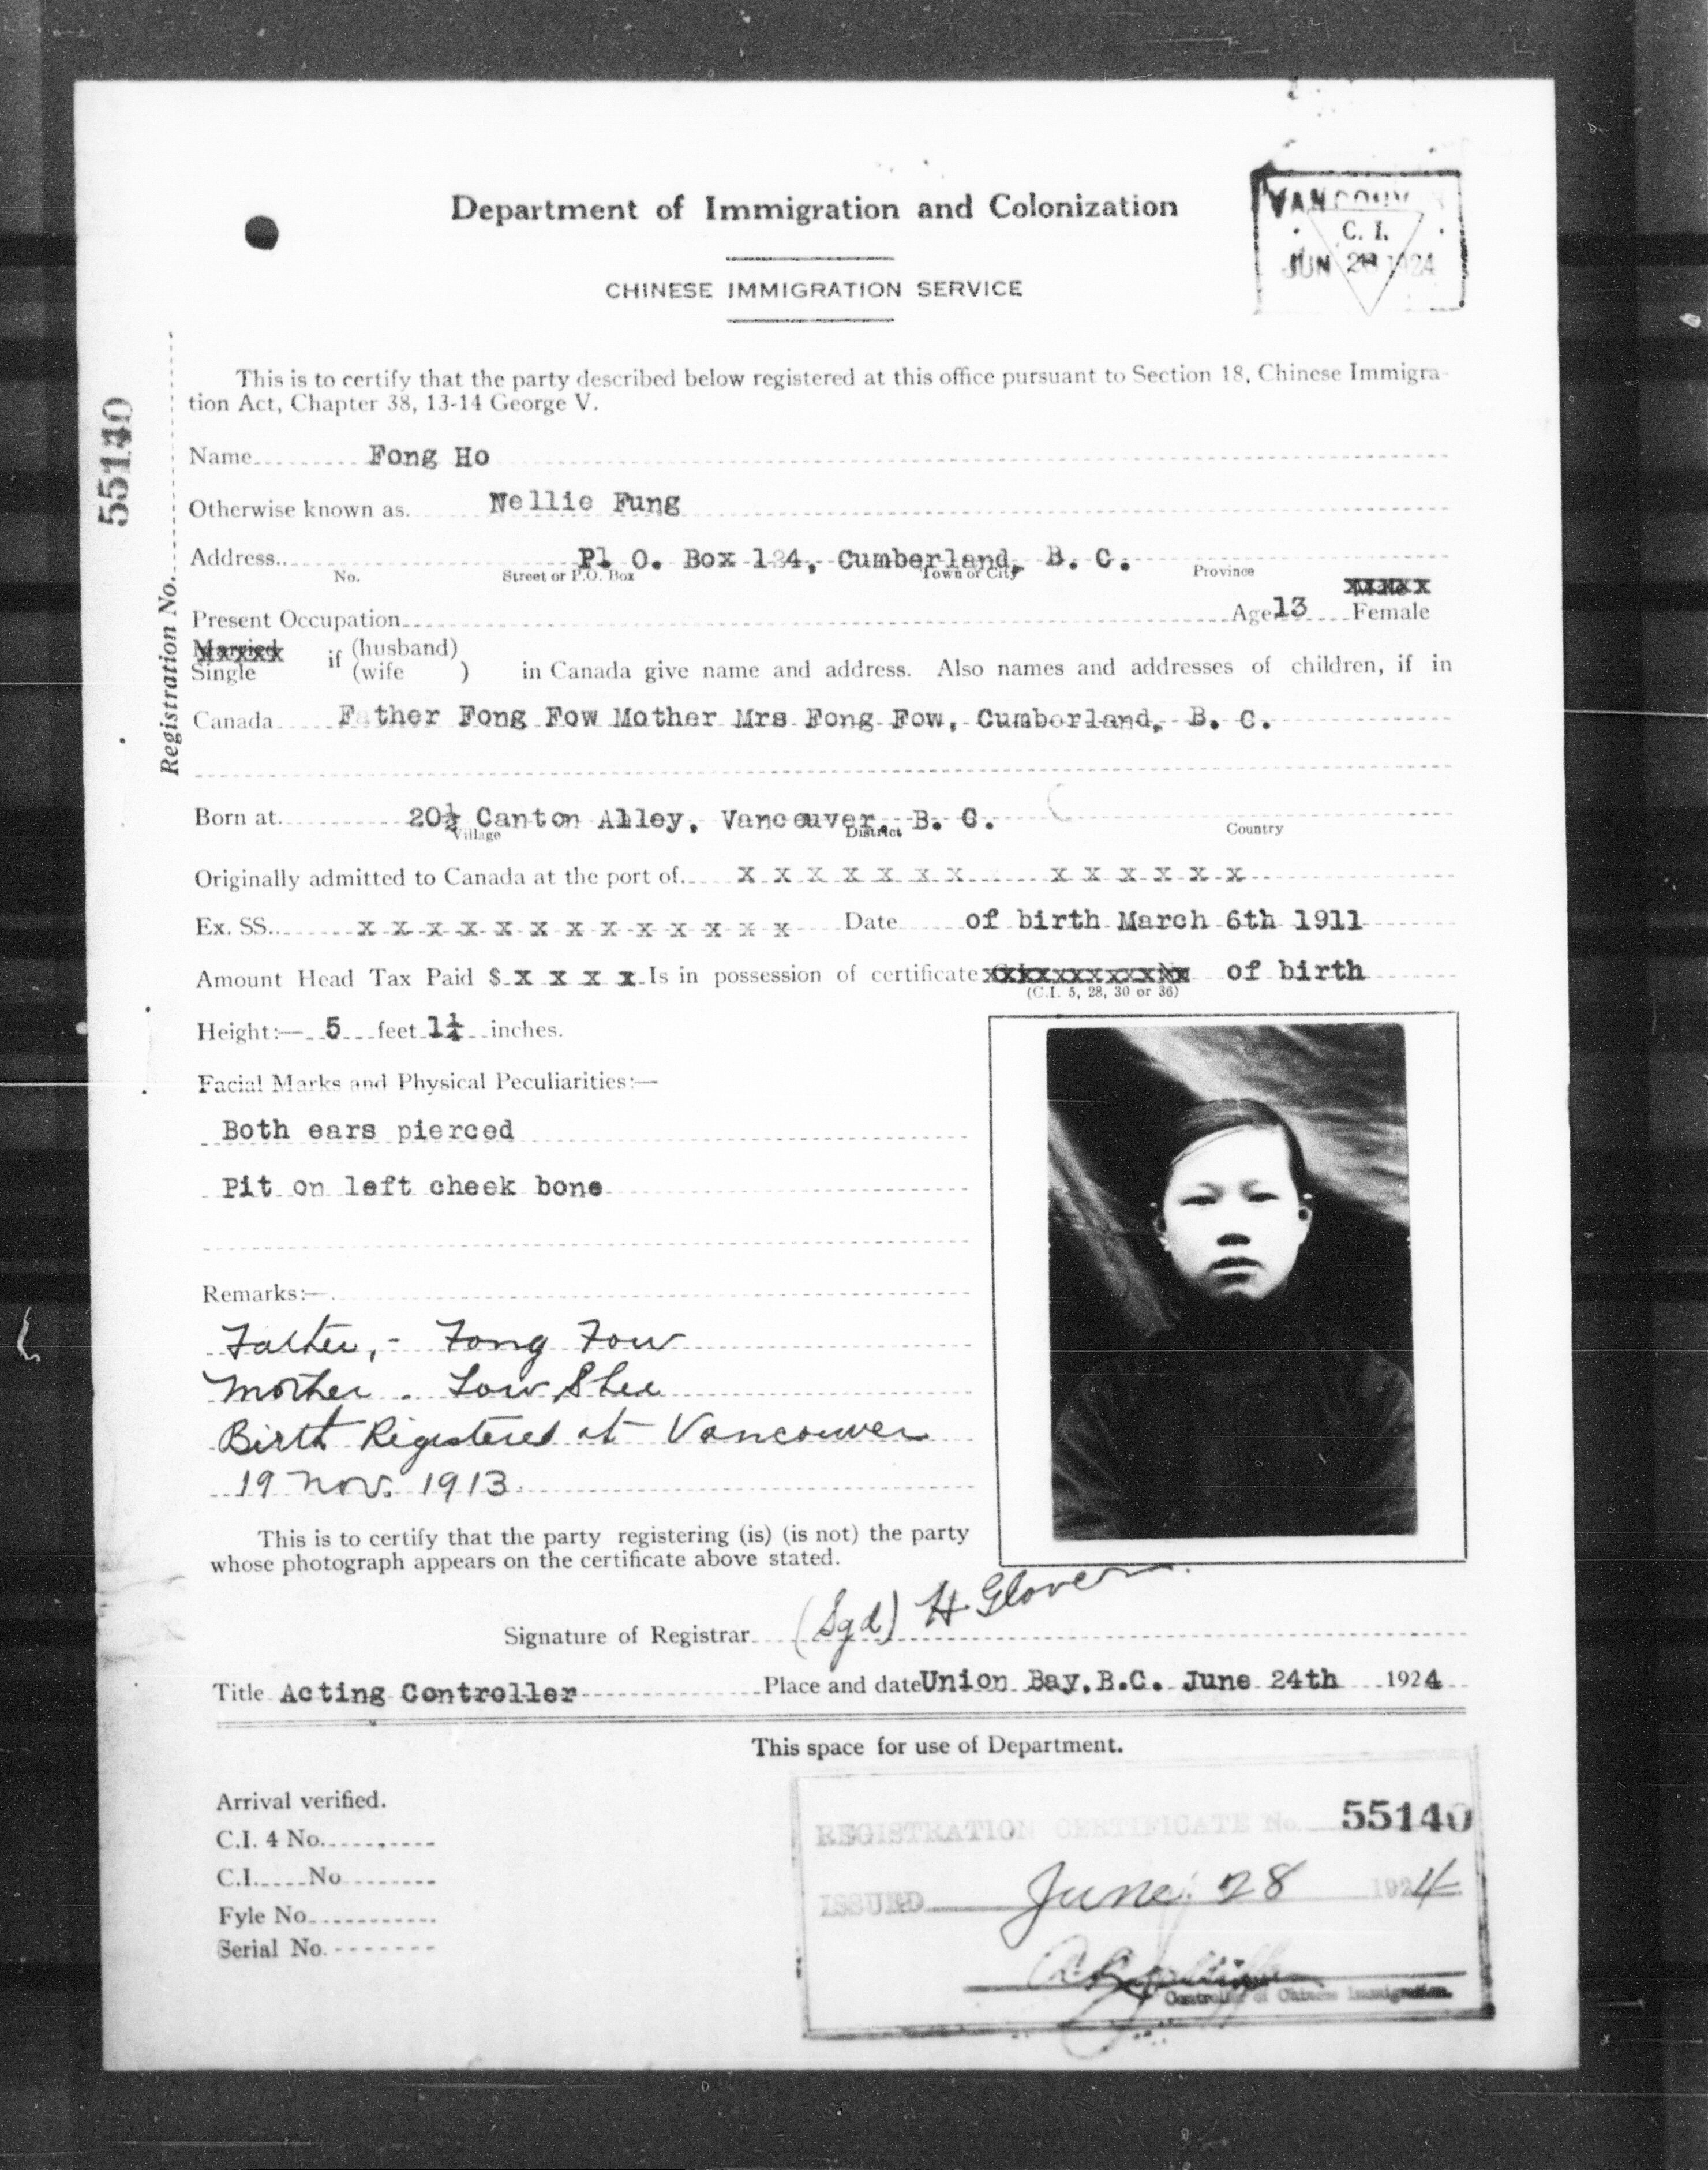 Department of Immigration and Colonization
VANCOUV
C. I.
JUN 28 1924
CHINESE IMMIGRATION SERVICE
This is to certify that the party described below registered at this office pursuant to Section 18, Chinese Immigra-
tion Act, Chapter 38, 13-14 George V.
Registration No. 55140
Name Fong Ho
Otherwise known as. Nellie Fung
Address Pl O. Box 124, Cumberland, B. C.
No. Street or P.O. Box Town or City Province
Present Occupation Age 13 Female
Married
Single if (husband)
(wife ) in Canada give name and address. Also names and addresses of children, if in
Canada Father Fong Fow Mother Mrs Fong Fow, Cumberland, B. C.
Born at 20½ Canton Alley, Vancouver, B. C.
Village District Country
Originally admitted to Canada at the port of x x x x x x x x x x x x x
Ex. SS. x x x x x x x x x x x x x Date of birth March 6th 1911
Amount Head Tax Paid $ x x x x Is in possession of certificate of birth
(C.I. 5, 28, 30 or 36)
Height:— 5 feet 1¼ inches.
Facial Marks and Physical Peculiarities:—
Both ears pierced
Pit on left cheek bone
Remarks:—
Father,- Fong Fow
Mother - Low Shee
Birth Registered at Vancouver
19 Nov. 1913.
This is to certify that the party registering (is) (is not) the party
whose photograph appears on the certificate above stated.
Signature of Registrar (Sgd) H Glover
Title Acting Controller Place and date Union Bay, B.C. June 24th 1924
This space for use of Department.
Arrival verified.
C.I. 4 No.
C.I. No
Fyle No
Serial No.
REGISTRATION CERTIFICATE No. 55140
ISSUED June 28 1924
Controller of Chinese Immigration.